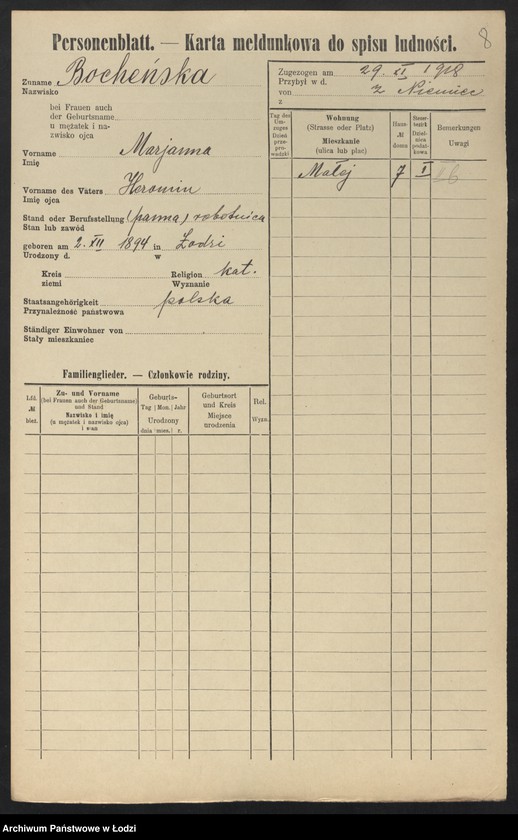 8
Personenblatt. — Karta meldunkowa do spisu ludności.
Zuname Bocheńska
Nazwisko
bei Frauen auch
der Geburtsname
u mężatek i na-
zwisko ojca
Vorname Marjanna
Imię
Vorname des Vaters Heromin
Imię ojca
Stand oder Berufsstellung (panna) robotnica
Stan lub zawód
geboren am 2. XII 1894 in Łodzi
Urodzony d. w
Kreis Religion kat.
ziemi Wyznanie
Staatsangehörigkeit polska
Przynależność państwowa
Ständiger Einwohner von
Stały mieszkaniec
Familienglieder. — Członkowie rodziny.
Lfd.
№
bież.
Zu- und Vorname
(bei Frauen auch der Geburtsname)
und Stand
Nazwisko i imię
(u mężatek i nazwisko ojca)
i stan
Geburts-
Tag | Mon. | Jahr
Urodzony
dnia | mies. | r.
Geburtsort
und Kreis
Miejsce
urodzenia
Rel.
Wyzn.
Zugezogen am 29. XI 1918
Przybył w d.
von z Niemiec
z
Tag des
Um-
zuges
Dzień
prze-
prowadzki
Wohnung
(Strasse oder Platz)
Mieszkanie
(ulica lub plac)
Haus-
№
domu
Steuer-
bezirk
Dziel-
nica
podat-
kowa.
Bemerkungen
Uwagi
Małej 7 II IIb
Archiwum Państwowe w Łodzi